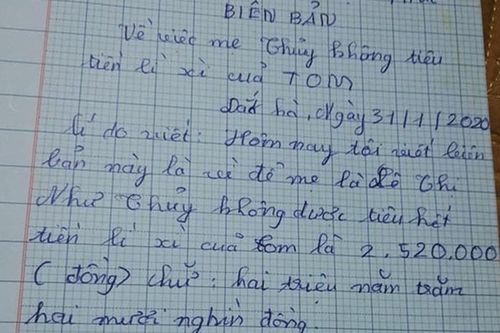 BIÊN BẢN
Về việc mẹ Thủy không tiêu
tiền lì xì của TOM
Đắk hà, Ngày 31/1/2020
lí do viết: Hôm nay tôi viết biên
bản này là vì để mẹ là Lê Thị
Như Thủy không được tiêu hết
tiền lì xì của tom là 2.520.000
(đồng) chữ: hai triệu năm trăm
hai mươi nghìn đồng.